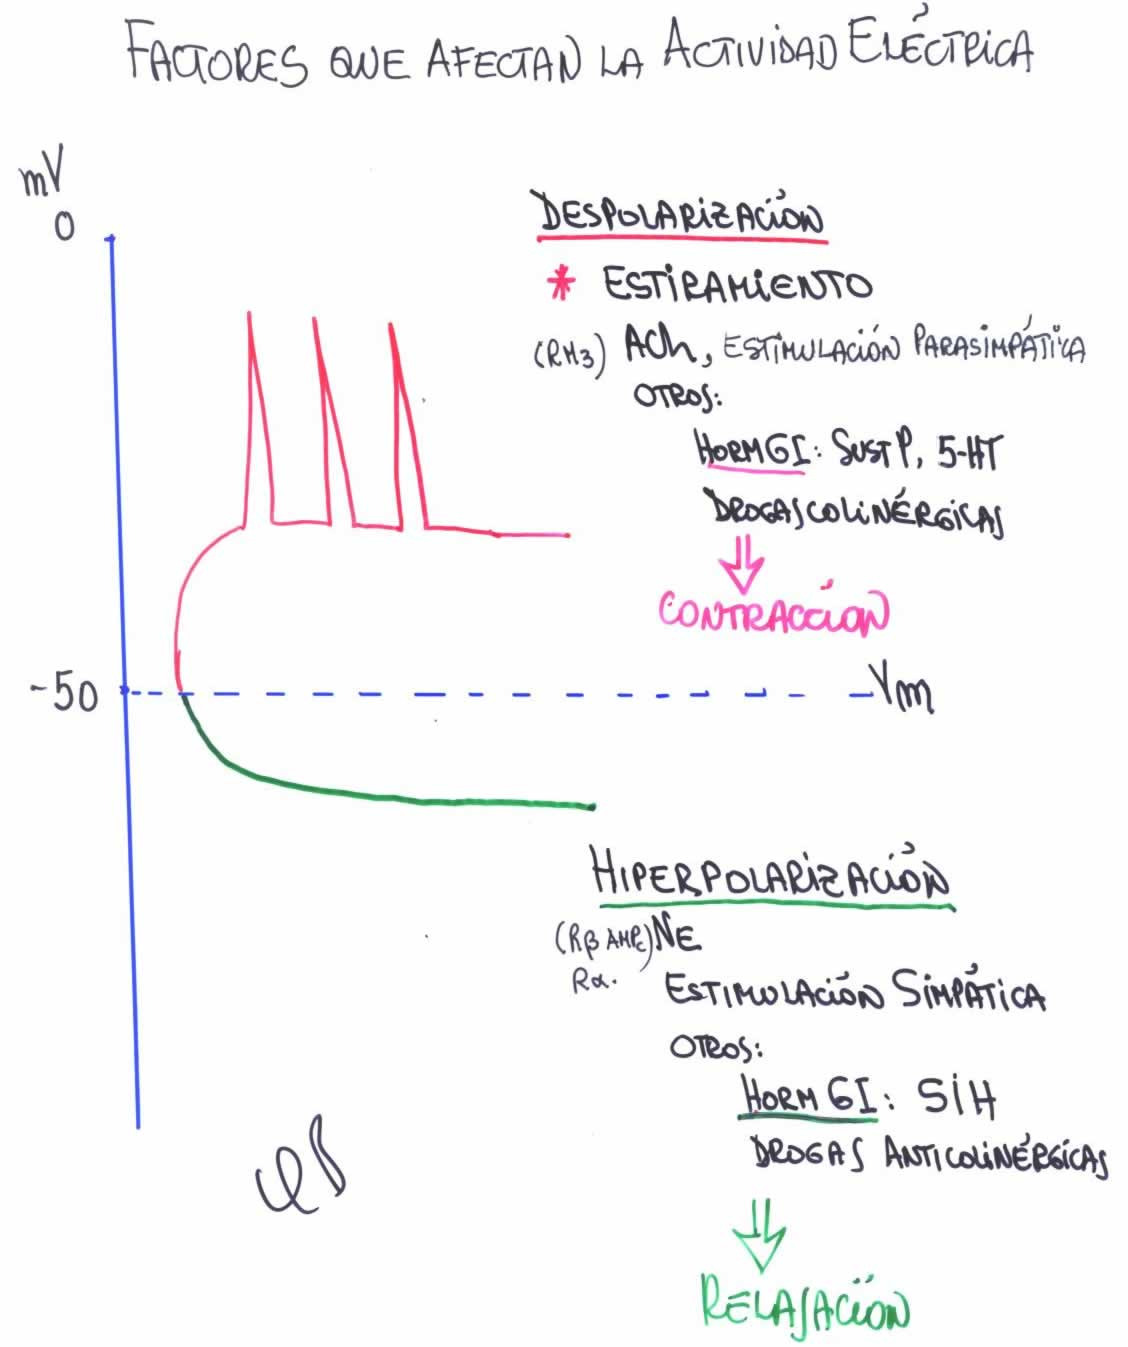 FACTORES QUE AFECTAN LA ACTIVIDAD ELÉCTRICA
mV
0
DESPOLARIZACIÓN
* ESTIRAMIENTO
(RM3) ACh, ESTIMULACIÓN PARASIMPÁTICA
OTROS:
HORM GI: SUST P, 5-HT
DROGAS COLINÉRGICAS
CONTRACCIÓN
-50
Vm
HIPERPOLARIZACIÓN
(Rβ AMPc) NE
Rα.
ESTIMULACIÓN SIMPÁTICA
OTROS:
HORM GI: SIH
DROGAS ANTICOLINÉRGICAS
RELAJACIÓN